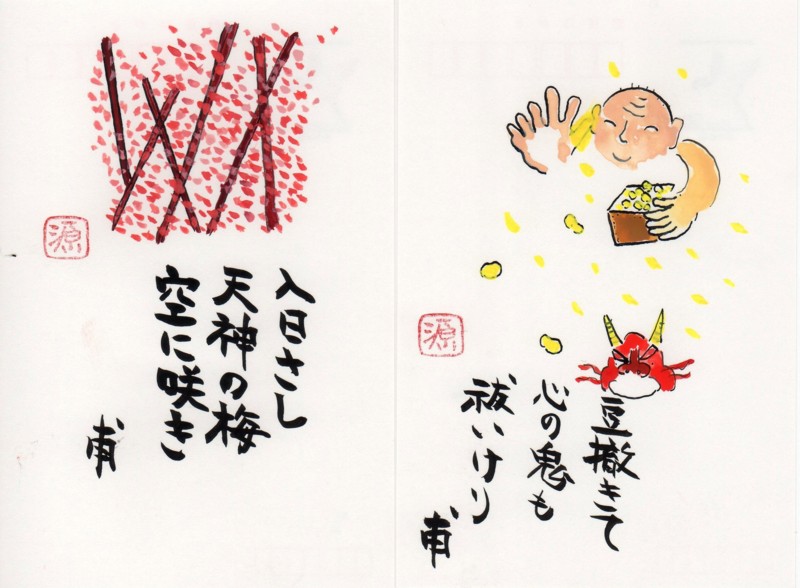 豆撤きて
心の鬼も
祓いけり
甫
源
入日さし
天神の梅
空に咲き
甫
源